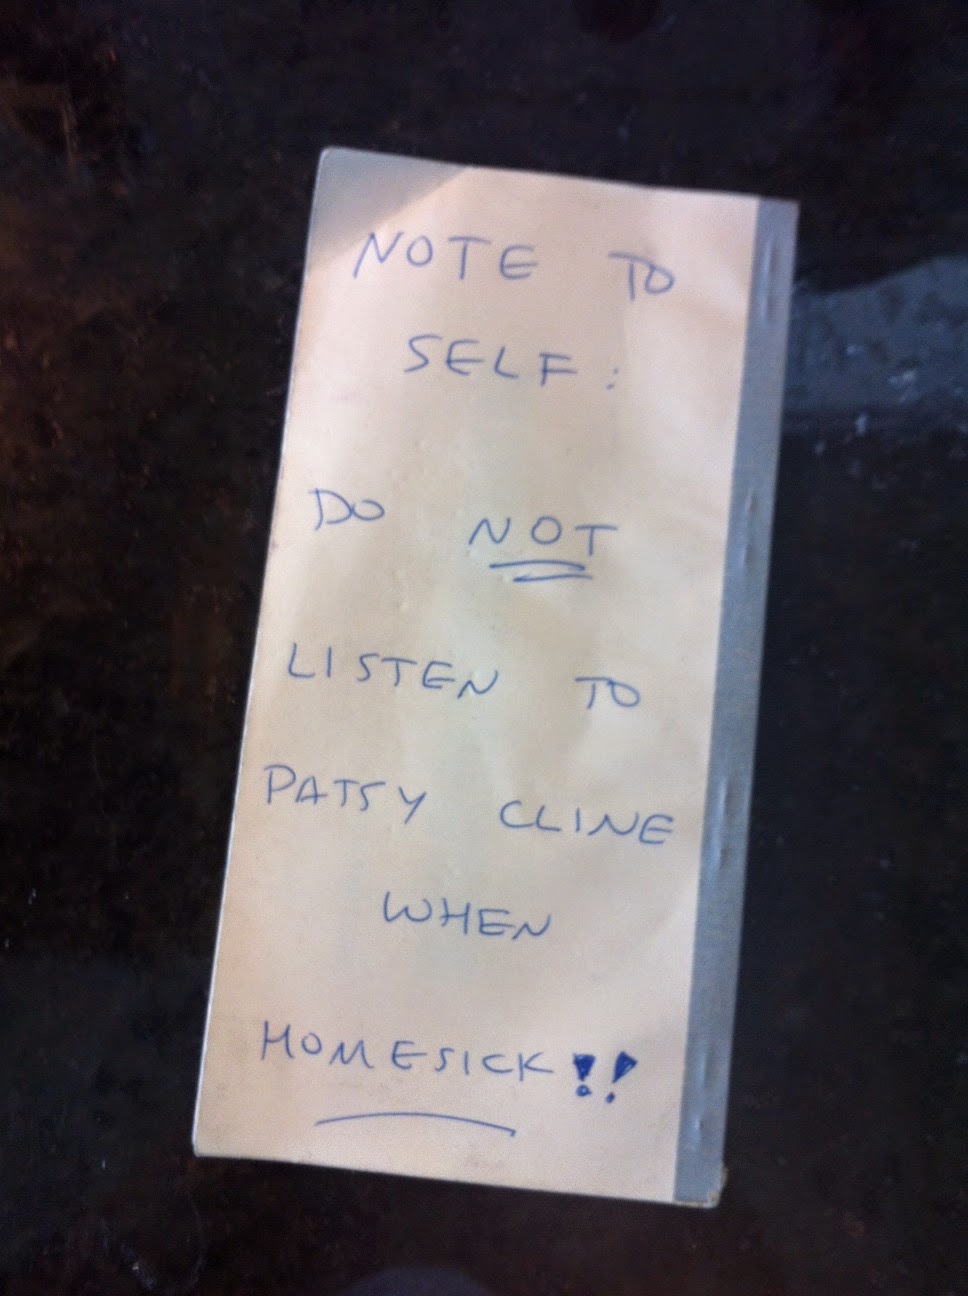 NOTE TO
SELF:
DO NOT
LISTEN TO
PATSY CLINE
WHEN
HOMESICK!!